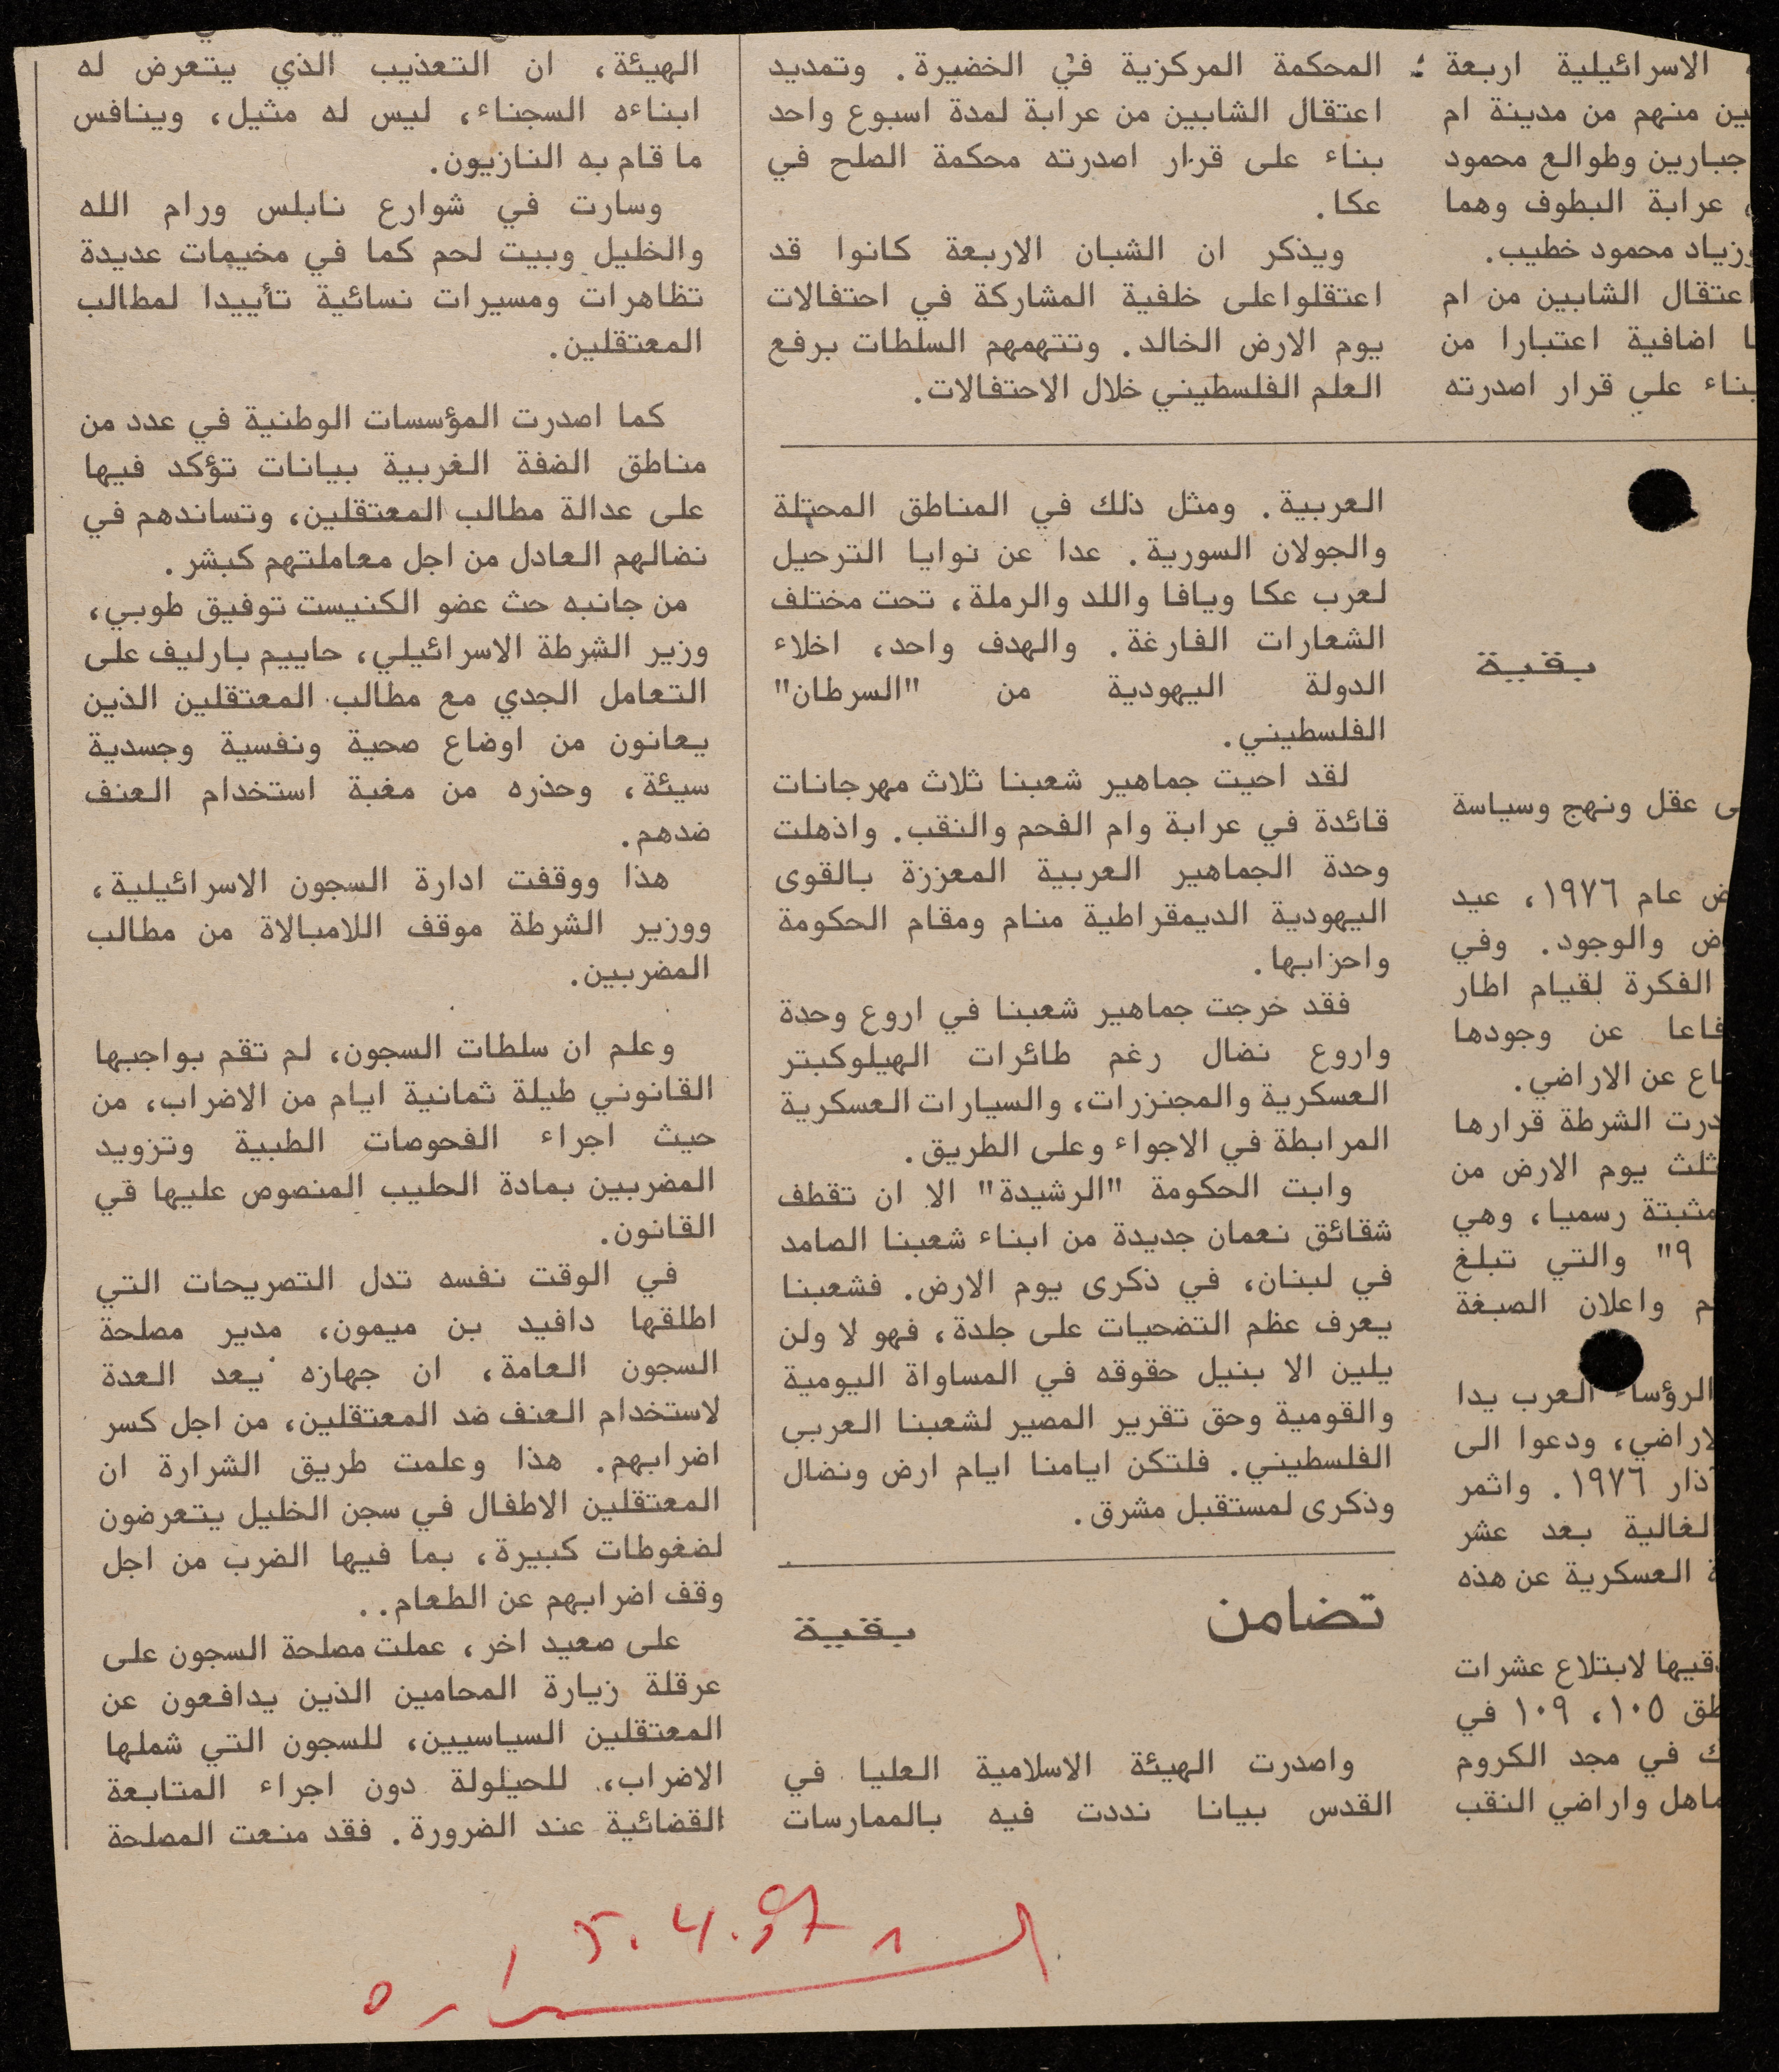 الاسرائيلية اربعة
منهم من مدينة ام
جبارين وطوالع محمود
عرابة البطوف وهما
وزياد محمود خطيب.
اعتقال الشابين من ام
اضافية اعتبارا من
بناء علي قرار اصدرته
المحكمة المركزية في الخضيرة. وتمديد
اعتقال الشابين من عرابة لمدة اسبوع واحد
بناء على قرار اصدرته محكمة الصلح في
عكا.
ويذكر ان الشبان الاربعة كانوا قد
اعتقلوا على خلفية المشاركة في احتفالات
يوم الارض الخالد. وتتهمهم السلطات برفع
العلم الفلسطيني خلال الاحتفالات.
بقية
عقل ونهج وسياسة
عام ١٩٧٦، عيد
والوجود. وفي
الفكرة لقيام اطار
عن وجودها
عن الاراضي.
الشرطة قرارها
يوم الارض من
مثبتة رسميا، وهي
٩" والتي تبلغ
واعلان الصبغة
الرؤساء العرب يدا
ودعوا الى
١٩٧٦. واثمر
بعد عشر
العسكرية عن هذه
لابتلاع عشرات
١٠٥، ١٠٩ في
في مجد الكروم
واراضي النقب
العربية. ومثل ذلك في المناطق المحتلة
والجولان السورية. عدا عن نوايا الترحيل
لعرب عكا ويافا واللد والرملة، تحت مختلف
الشعارات الفارغة. والهدف واحد، اخلاء
الدولة اليهودية من "السرطان"
الفلسطيني.
لقد احيت جماهير شعبنا ثلاث مهرجانات
قائدة في عرابة وام الفحم والنقب. واذهلت
وحدة الجماهير العربية المعززة بالقوى
اليهودية الديمقراطية منام ومقام الحكومة
واحزابها.
فقد خرجت جماهير شعبنا في اروع وحدة
واروع نضال رغم طائرات الهيلوكبتر
العسكرية والمجنزرات، والسيارات العسكرية
المرابطة في الاجواء وعلى الطريق.
وابت الحكومة "الرشيدة" الا ان تقطف
شقائق نعمان جديدة من ابناء شعبنا الصامد
في لبنان، في ذكرى يوم الارض. فشعبنا
يعرف عظم التضحيات على جلدة، فهو لا ولن
يلين الا بنيل حقوقه في المساواة اليومية
والقومية وحق تقرير المصير لشعبنا العربي
الفلسطيني. فلتكن ايامنا ايام ارض ونضال
وذكرى لمستقبل مشرق.
تضامن
بقية
واصدرت الهيئة الاسلامية العليا في
القدس بيانا نددت فيه بالممارسات
الهيئة، ان التعذيب الذي يتعرض له
ابناءه السجناء، ليس له مثيل، وينافس
ما قام به النازيون.
وسارت في شوارع نابلس ورام الله
والخليل وبيت لحم كما في مخيمات عديدة
تظاهرات ومسيرات نسائية تأييدا لمطالب
المعتقلين.
كما اصدرت المؤسسات الوطنية في عدد من
مناطق الضفة الغربية بيانات تؤكد فيها
على عدالة مطالب المعتقلين، وتساندهم في
نضالهم العادل من اجل معاملتهم كبشر.
من جانبه حث عضو الكنيست توفيق طوبي،
وزير الشرطة الاسرائيلي، حاييم بارليف على
التعامل الجدي مع مطالب المعتقلين الذين
يعانون من اوضاع صحية ونفسية وجسدية
سيئة، وحذره من مغبة استخدام العنف
ضدهم.
هذا ووقفت ادارة السجون الاسرائيلية،
ووزير الشرطة موقف اللامبالاة من مطالب
المضربين.
وعلم ان سلطات السجون، لم تقم بواجبها
القانوني طيلة ثمانية ايام من الاضراب، من
حيث اجراء الفحوصات الطبية وتزويد
المضربين بمادة الحليب المنصوص عليها في
القانون.
في الوقت نفسه تدل التصريحات التي
اطلقها دافيد بن ميمون، مدير مصلحة
السجون العامة، ان جهازه يعد العدة
لاستخدام العنف ضد المعتقلين، من اجل كسر
اضرابهم. هذا وعلمت طريق الشرارة ان
المعتقلين الاطفال في سجن الخليل يتعرضون
لضغوطات كبيرة، بما فيها الضرب من اجل
وقف اضرابهم عن الطعام..
على صعيد اخر، عملت مصلحة السجون على
عرقلة زيارة المحامين الذين يدافعون عن
المعتقلين السياسيين، للسجون التي شملها
الاضراب، للحيلولة دون اجراء المتابعة
القضائية عند الضرورة. فقد منعت المصلحة
الشرارة